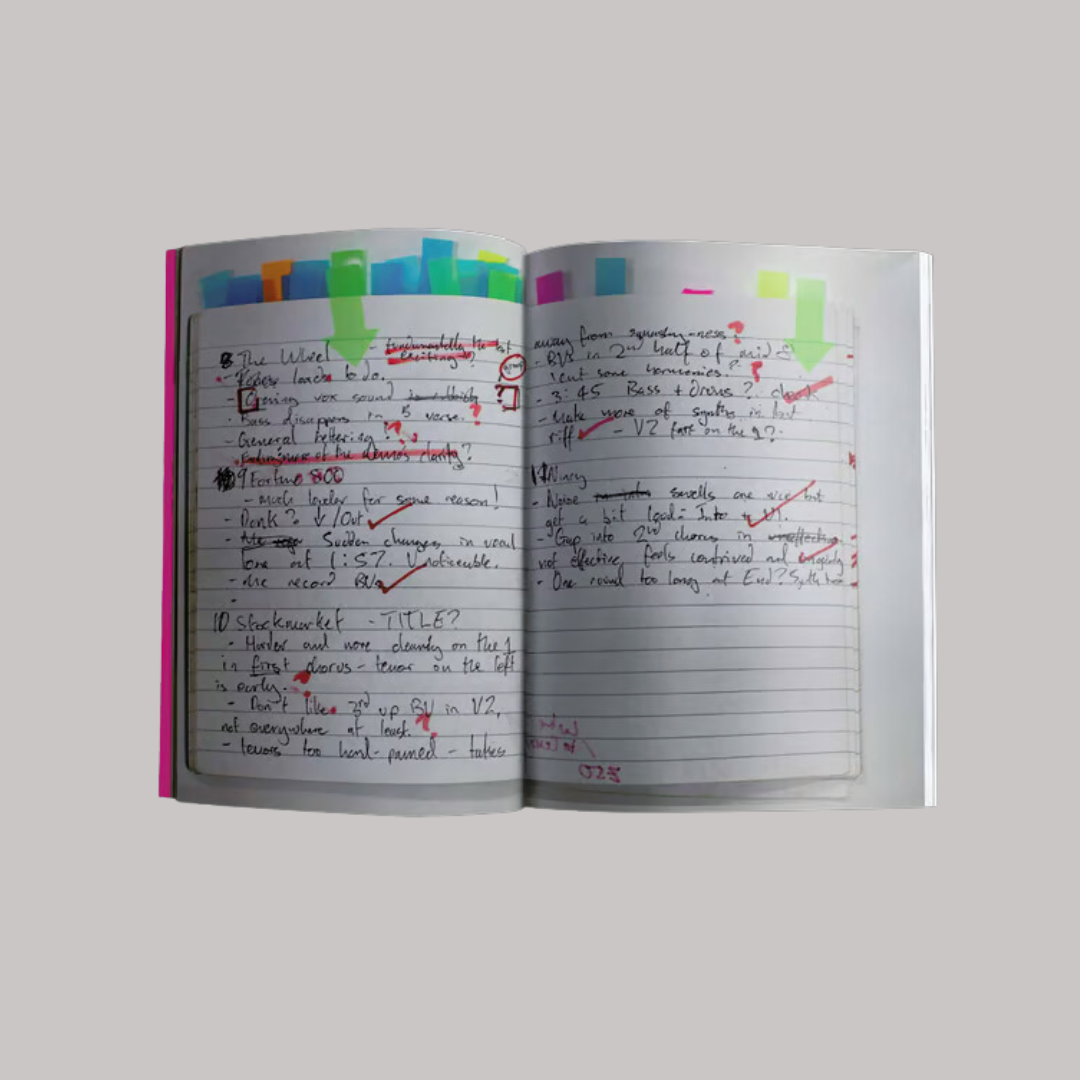 8 The Wheel - fundamentally the
exciting?
loads to do.
- Opening vox sound
- Bass disappears in 5 verse. ?
- General bettering !?
of the demos clarity?
9 Fortune 800
- Much louder for some reason!
- Donk? ↓ /Out
- Sudden changes in vocal
tone at 1:57. V noticeable.
- record BVs
-
10 Stockmarket - TITLE?
- Harder and more cleanly on the 1
in first chorus - tenor on the left
is early.
- Don't like 3rd up BV in V2,
not everywhere at least.
- tenors too hard-panned - takes
away from squashy-ness.
- BVs in 2nd half of mid 8
some harmonies.
- 3:45 Bass + Drums? check
- Make more of synths in last
riff - V2 fast on the 1?
11 Ninety
- Noise swells are nice but
get a bit loud - Into V1.
- Gap into 2nd chorus in
not effective, feels contrived and
- One round too long at End? Synth